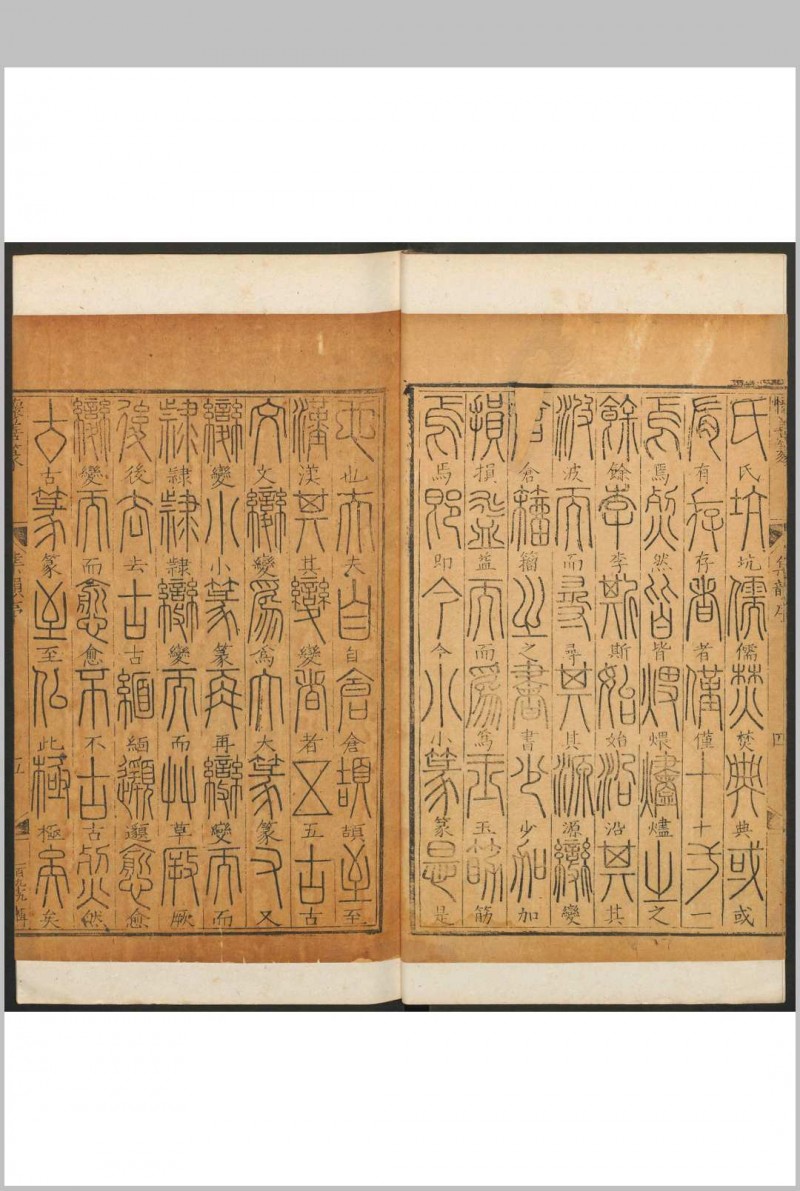 韻序 四
氏坑儒焚典或
有存者僅十一
焉然皆煨燼之
餘李斯始沿其
波而尋其源變
倉籀之書少加
損益而爲玉筋
焉即今小篆是
也夫自倉頡至
漢其變者五古
文變爲大篆又
變小篆再變而
隸隸變而草厥
後去古緬邈愈
變而愈不古然
古篆至此極矣
韻序 五